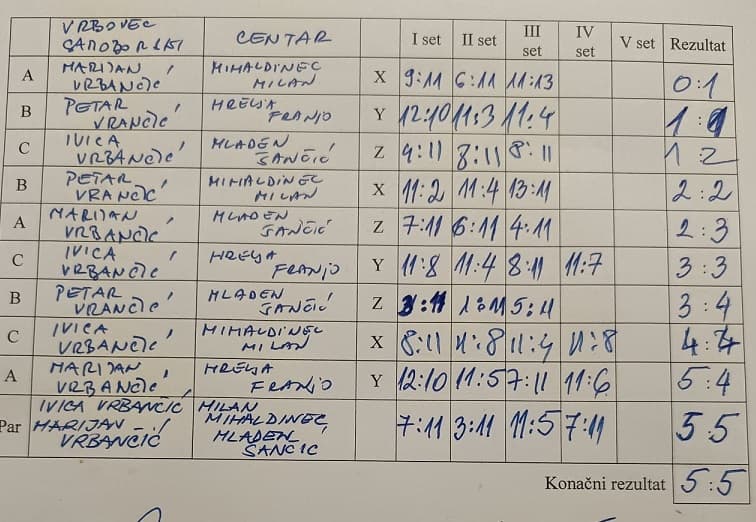 VRBOVEC SAMOBORSKI CENTAR I set II set III set IV set V set Rezultat
A MARIJAN VRBANČIĆ MIHALDINEC MILAN X 9:11 6:11 11:13 0:1
B PETAR VRANČIĆ HRELJA FRANJO Y 12:10 11:3 11:4 1:1
C IVICA VRBANČIĆ MLADEN SANČIĆ Z 4:11 8:11 8:11 1:2
B PETAR VRANČIĆ MIHALDINEC MILAN X 11:2 11:4 13:11 2:2
A MARIJAN VRBANČIĆ MLADEN SANČIĆ Z 7:11 6:11 4:11 2:3
C IVICA VRBANČIĆ HRELJA FRANJO Y 11:8 11:4 8:11 11:7 3:3
B PETAR VRANČIĆ MLADEN SANČIĆ Z 3:11 1:11 5:11 3:4
C IVICA VRBANČIĆ MIHALDINEC MILAN X 8:11 11:8 11:4 11:8 4:4
A MARIJAN VRBANČIĆ HRELJA FRANJO Y 12:10 11:5 7:11 11:6 5:4
Par IVICA VRBANČIĆ MARIJAN VRBANČIĆ MILAN MIHALDINEC MLADEN SANČIĆ 7:11 3:11 11:5 7:11 5:5
Konačni rezultat 5:5